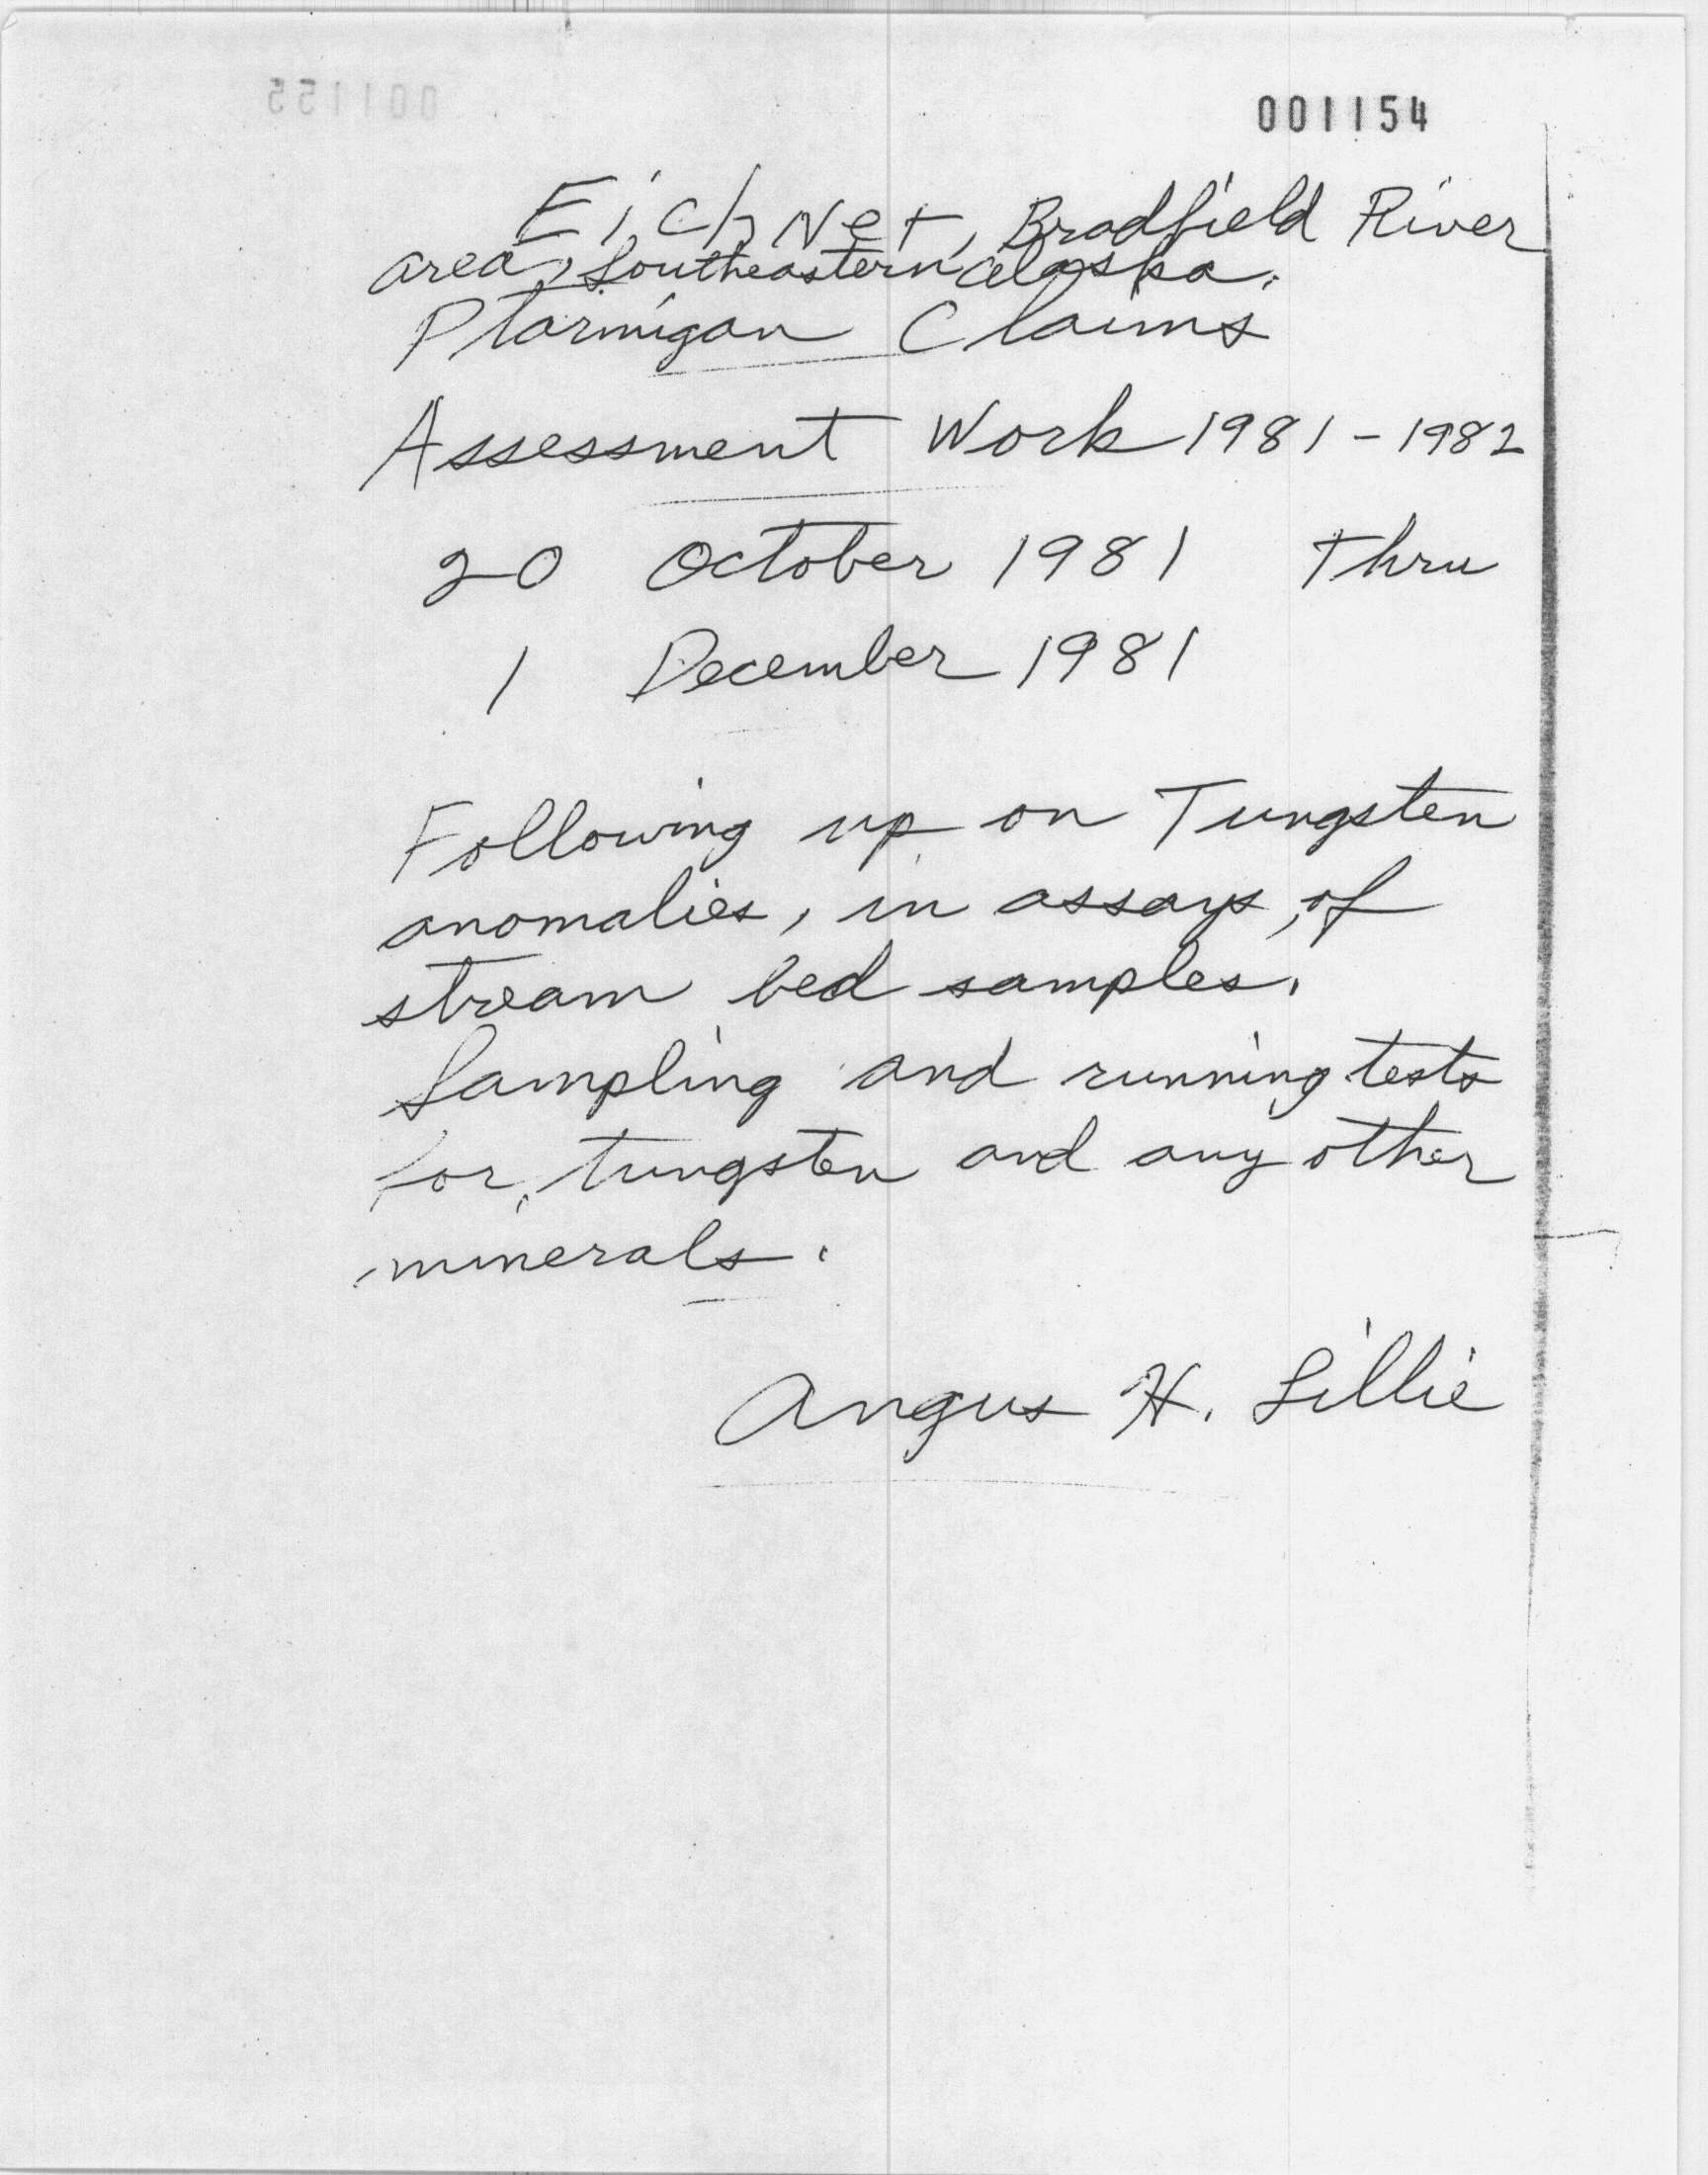 001155
001154
EichNet, Bradfield River
area, Southeastern Alaska.
Ptarmigan Claims
Assessment Work 1981-1982
20 October 1981 Thru
1 December 1981
Following up on Tungsten
anomalies, in assays, of
stream bed samples.
Sampling and running tests
for, tungsten and any other
minerals.
Angus H. Lillie